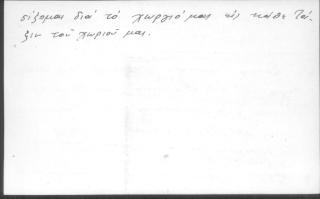 σίζομαι διά τό χωριό μας είς κάθε τά-
ξιν τοῦ χωριοῦ μας.